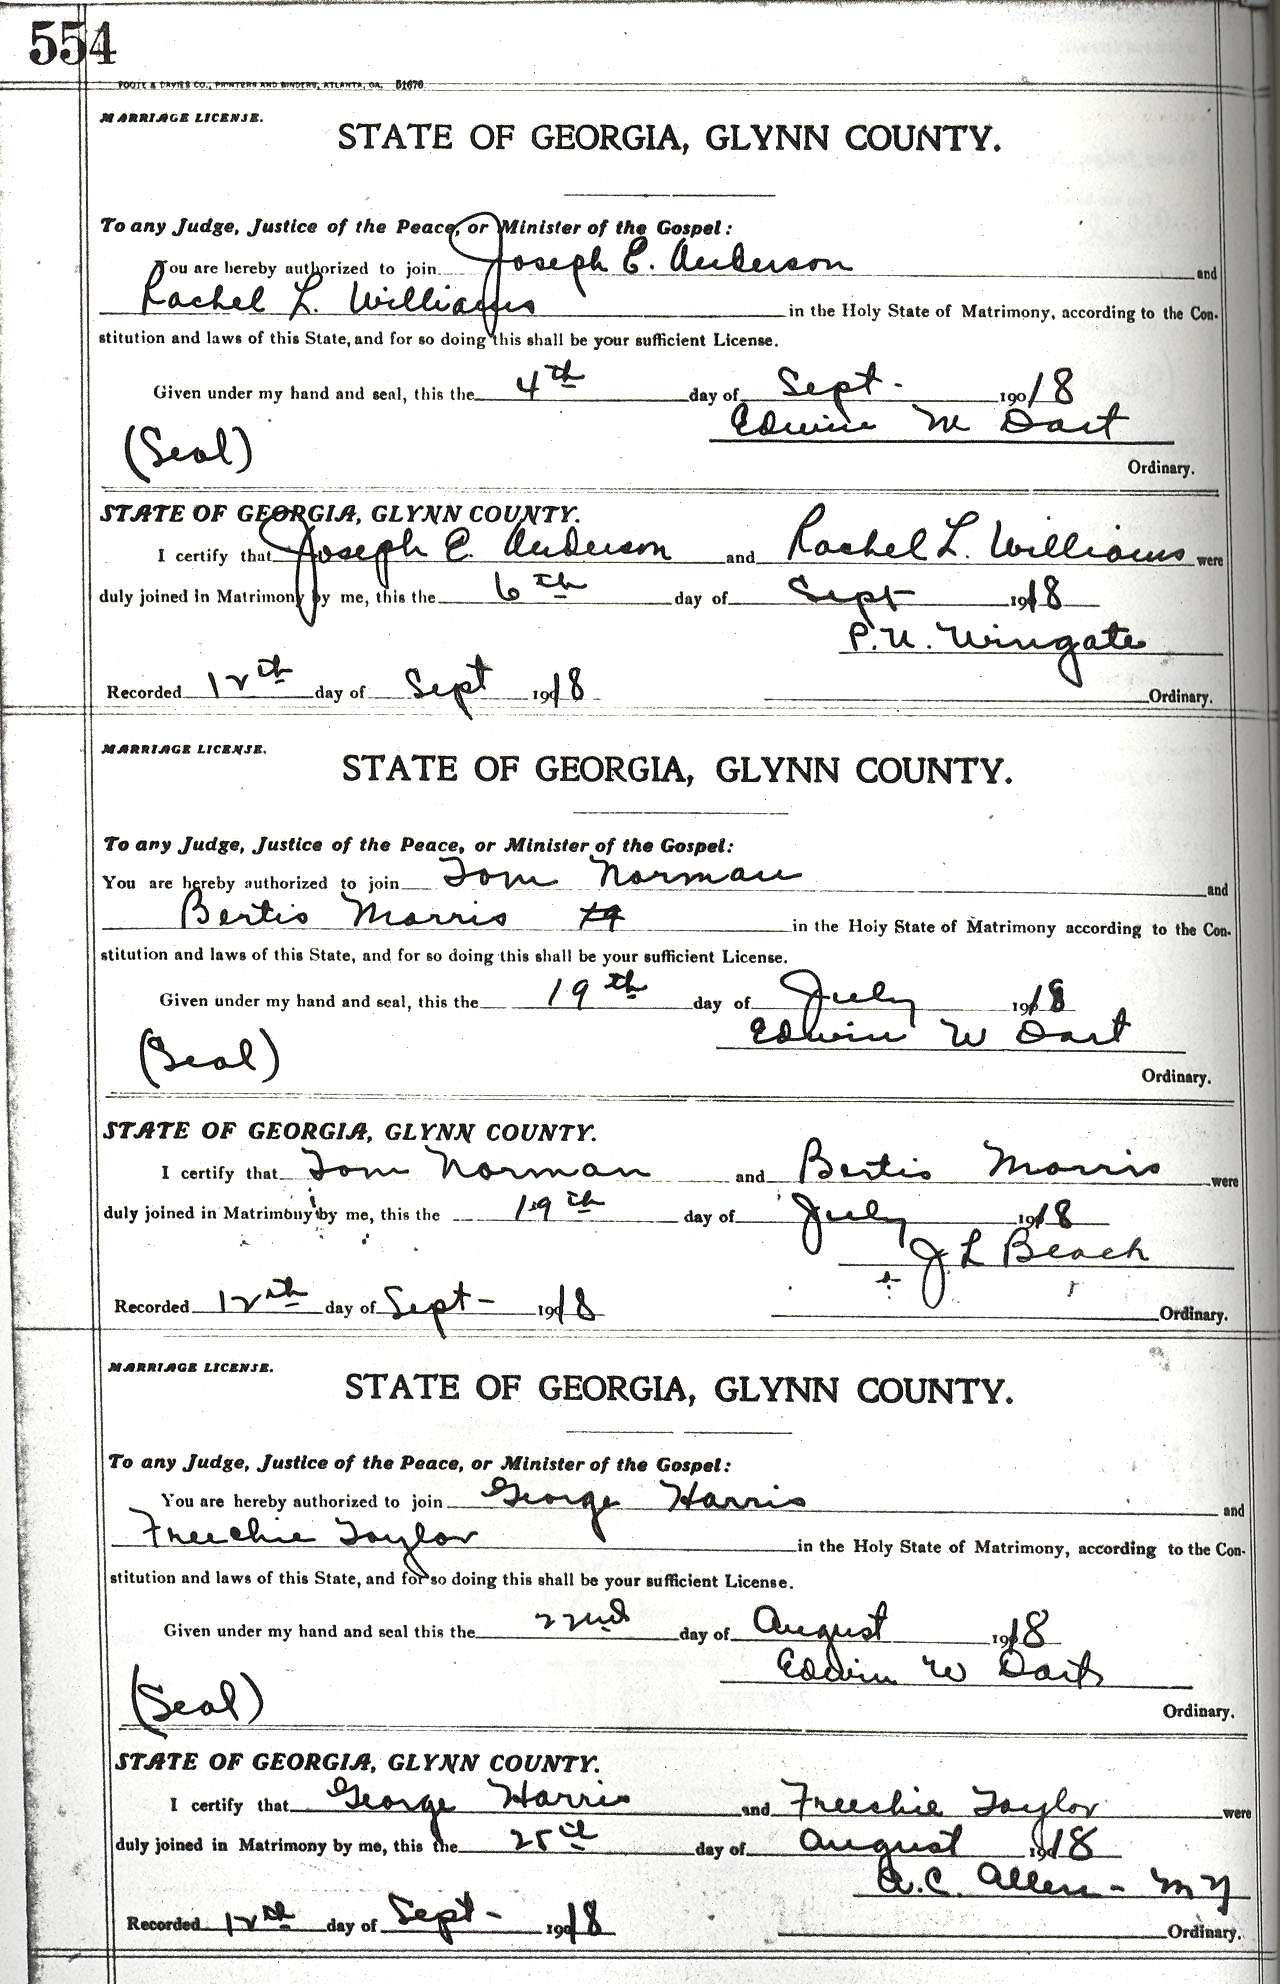 554
FOOTE & DAVIES CO., PRINTERS AND BINDERS, ATLANTA, GA. 51676
MARRIAGE LICENSE.
STATE OF GEORGIA, GLYNN COUNTY.
To any Judge, Justice of the Peace, or Minister of the Gospel:
You are hereby authorized to join Joseph E. Anderson and
Rachel L. Williams in the Holy State of Matrimony, according to the Con-
stitution and laws of this State, and for so doing this shall be your sufficient License.
Given under my hand and seal, this the 4th day of Sept. 1918
Edwin W Dart
(Seal)
Ordinary.
STATE OF GEORGIA, GLYNN COUNTY.
I certify that Joseph E. Anderson and Rachel L. Williams were
duly joined in Matrimony by me, this the 6th day of Sept 1918
P.U. Wingate
Recorded 12th day of Sept 1918 Ordinary.
MARRIAGE LICENSE.
STATE OF GEORGIA, GLYNN COUNTY.
To any Judge, Justice of the Peace, or Minister of the Gospel:
You are hereby authorized to join Tom Norman and
Bertis Morris in the Holy State of Matrimony according to the Con-
stitution and laws of this State, and for so doing this shall be your sufficient License.
Given under my hand and seal, this the 19th day of July 1918
Edwin W Dart
(Seal)
Ordinary.
STATE OF GEORGIA, GLYNN COUNTY.
I certify that Tom Norman and Bertis Morris were
duly joined in Matrimony by me, this the 19th day of July 1918
J L Beach
Recorded 12th day of Sept- 1918 Ordinary.
MARRIAGE LICENSE.
STATE OF GEORGIA, GLYNN COUNTY.
To any Judge, Justice of the Peace, or Minister of the Gospel:
You are hereby authorized to join George Harris and
Freechie Taylor in the Holy State of Matrimony, according to the Con-
stitution and laws of this State, and for so doing this shall be your sufficient License.
Given under my hand and seal this the 22nd day of August 1918
Edwin W Dart
(Seal)
Ordinary.
STATE OF GEORGIA, GLYNN COUNTY.
I certify that George Harris and Freechie Taylor were
duly joined in Matrimony by me, this the 25th day of August 1918
A.C. Allen -
Recorded 12th day of Sept- 1918 Ordinary.